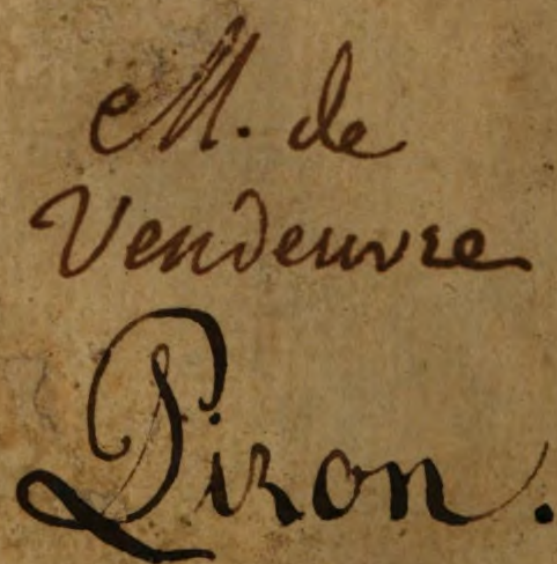 M. de
Vendeuvre
Piron.